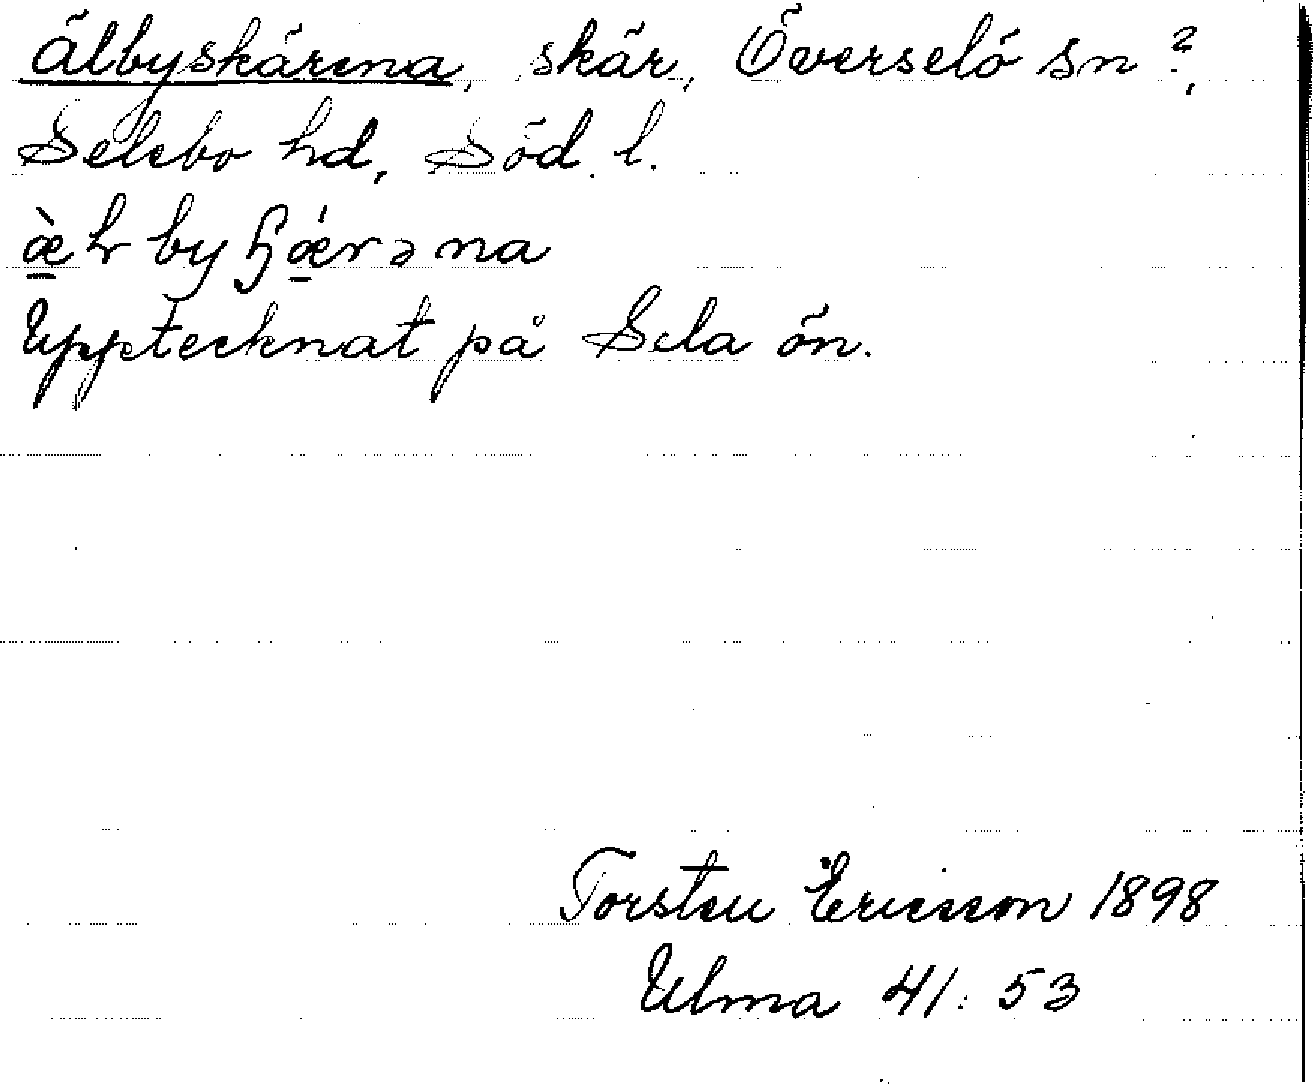 Älbyskärena, skär, Överselö sn?,
Selebo hd, Söd. l.
Upptecknat på Sela ön.
Torsten Ericsson 1898
Ulma 41:53